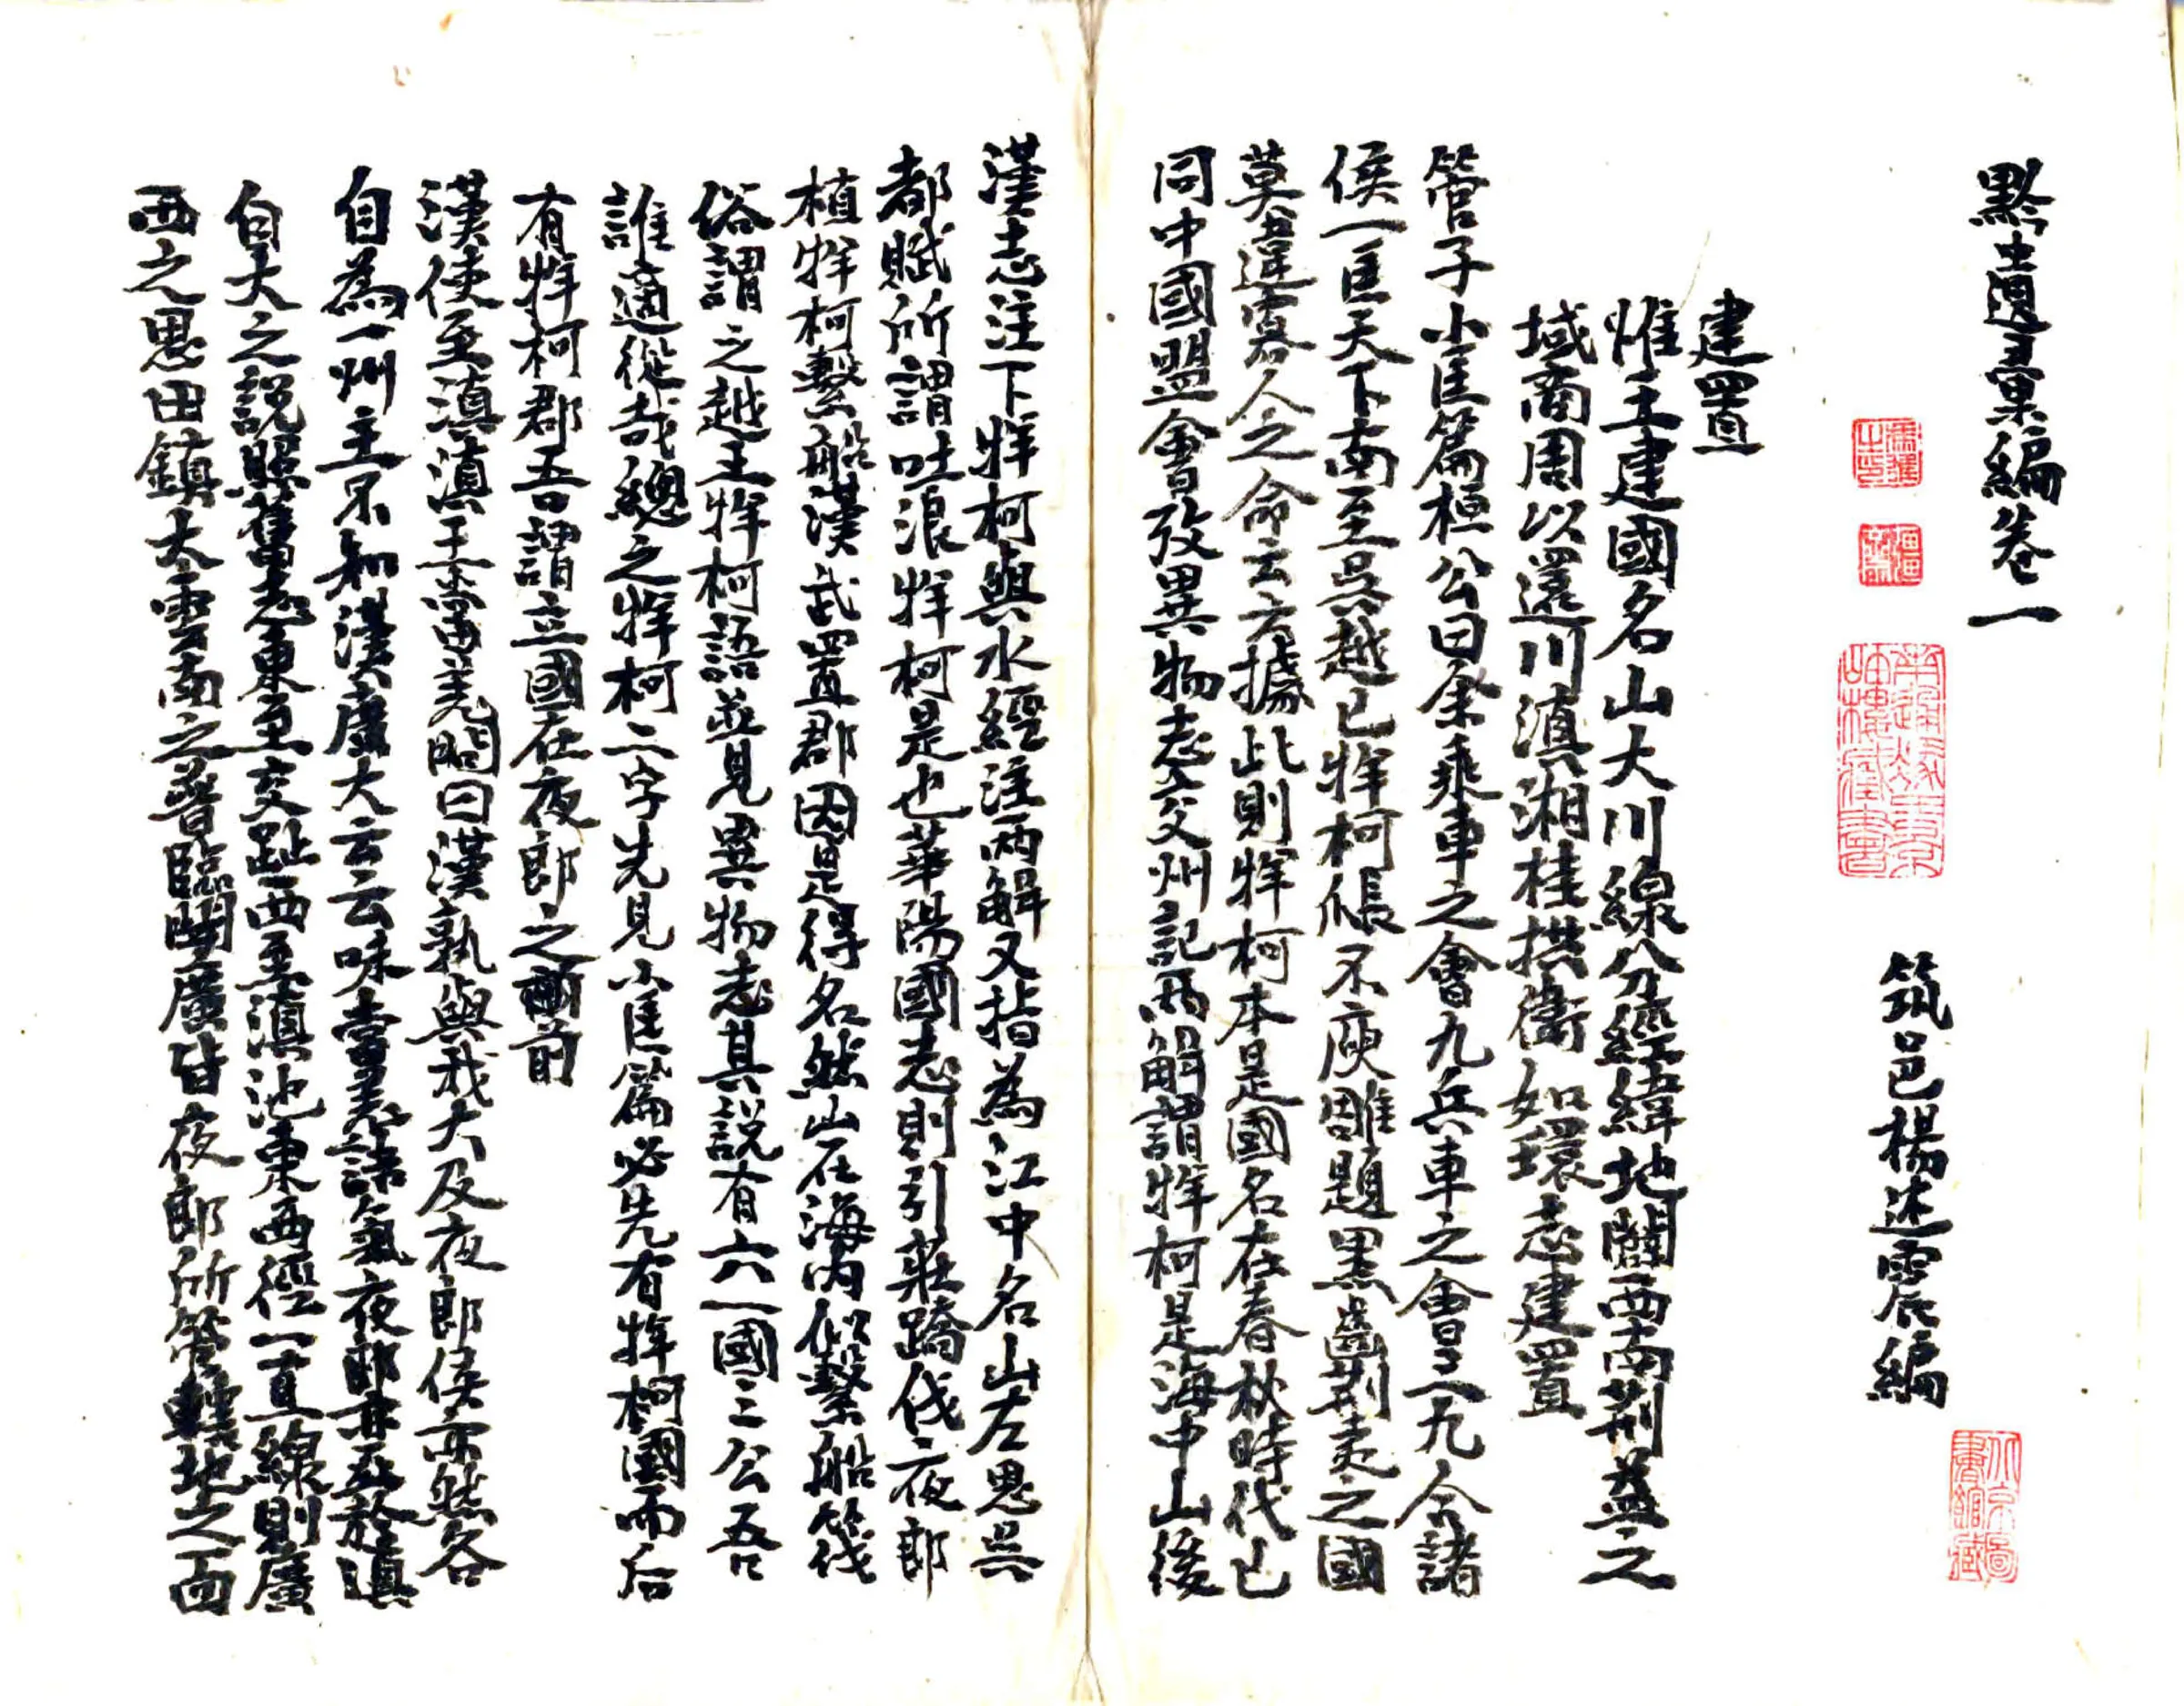 黔遺彙編卷一
筑邑楊述震編
建置
惟王建國名山大川線分經緯地闢西南荊益之
域商周以還川滇湘桂拱衛如環志建置
管子小匡篇桓公曰余乘車之會九兵車之會三一九合諸
侯一匡天下南至吳越巴牂柯𠉛不庾雕題黑齒荊夷之國
莫違寡人之命云云據此則牂柯本是國名在春秋時代已
同中國盟會攷異物志交州記兩解謂牂柯是海中山後
漢志注下牂柯與水經注兩解又指為江中名山左思吳
都賦所謂吐浪牂柯是也華陽國志則引莊蹻伐夜郎
植牂柯繫船漢武置郡因是得名然山在海內似繫船筏
俗謂之越王牂柯語並見異物志其説有六一國三公吾
誰適從哉總之牂柯二字先見小匡篇必先有牂柯國而后
有牂柯郡吾謂立國在夜郎之前
漢使至滇滇王當羌問曰漢孰與我大及夜郎侯亦然各
自為一州主不知漢廣大云云味當羌語氣夜郎非亞於滇
自大之説照舊志東至交趾西至滇池東西徑一直線則廣
西之思田鎮太雲南之普臨開廣皆夜郎所管轄地之面